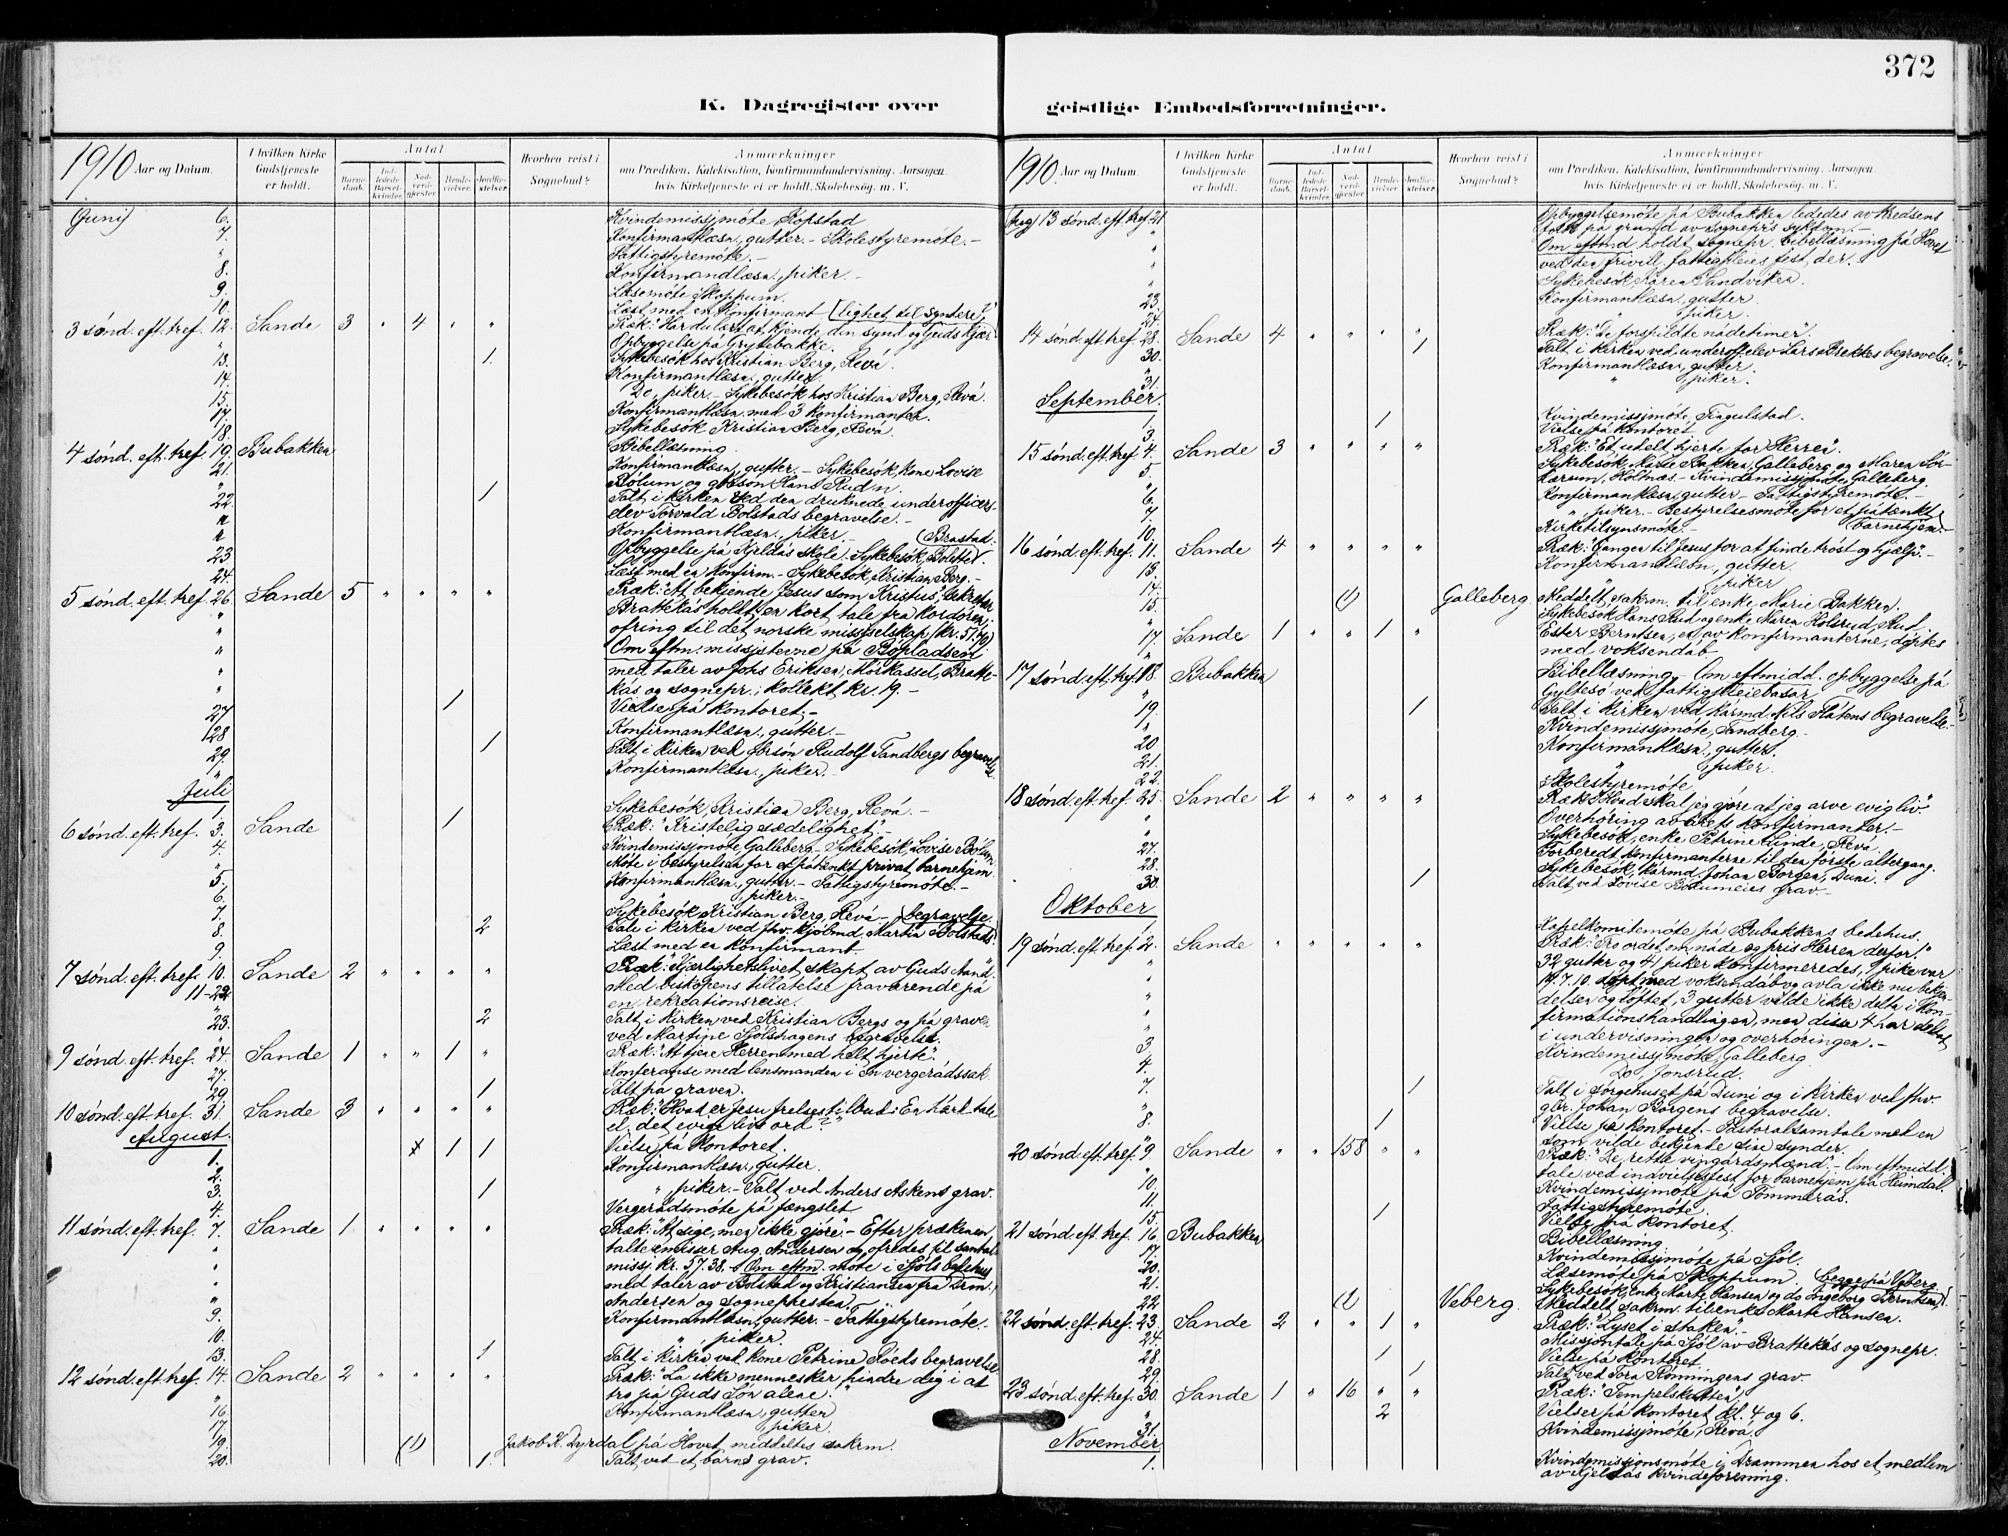 372
K. Dagregister over geistlige Embedsforretninger.
1910 Aar og Datum. I hvilken Kirke Gudstjeneste er holdt. Antal Barnedaab. Indledede Barselkvinder. Nadverdgjester. Brudevielser. Jordfæstelser. Hvorhen reist i Sognebud? Anmærkninger om Prædiken, Katekisation, Konfirmandundervisning, Aarsagen, hvis Kirketjeneste ei er holdt, Skolebesøg, m. V.
Juni 6. Kvindemissjmöte Kopstad
7. Konfirmantlæsn., gutter. - Skolestyremöte. -
" Fattigstyremöte. -
8. Konfirmandlæsn., piker. -
9. Læsemöte Skoppum.
10. Læst med en Konfirmant
3 sönd. eft. tref. 12. Sande 3 " 4 " " Præk: "Har du lært at kjende din synd og Guds kjærlighet til syndere?"
" Opbyggelse på Grytebakke.
13. 1. Sykebesök hos Kristian Berg, Revå.
14. Konfirmantlæsn., gutter
15. Do, piker. - Sykebesök hos Kristian Berg, Revå.
17. Konfirmantlæsn. med 3 konfirmanter.
18. Sykebesök Kristian Berg, Revå.
4 sönd. eft. tref. 19. Bubakken Bibellæsning.
21. Konfirmantlæsn., gutter. - Sykebesök, kone Lovise
" Bölum og Hans Rud
22. 1 Talt i kirken ved den druknede underofficers-
" elev Torvald Bolstads begravelse. -
" Konfirmantlæsn., piker. -
23 Opbyggelse på Kjeldås skole. Sykebesök, Bolette Brastad.
24. Læst med en konfirm. - Sykebesök, Kristian Berg. -
5 sönd. eft. tref. 26. Sande 5 " " " " Præk: "At bekjende Jesus som Kristus", sekretær
" Brattekås holdt en kort tale fra kordören;
" ofring til det norske missjselskap (kr. 51.70)
" Om eftm. missjstevne på Böpladsen
" med taler av Johs Eriksen, Mörkassel, Bratte-
" kås og sognepr.; kollekt kr. 19. -
27 1 Vielse på kontoret. -
28 Konfirmantlæsn., gutter. -
29. 1 Talt i kirken ved Rudolf Sandbergs begravelse.
" Konfirmantlæsn., piker. -
Juli
1. Sykebesök, Kristian Berg, Revå. -
6 sönd. eft. tref. 3. Sande 1 Præk: "Kristelig sædelighet". -
4. Kvindemissjmöte, Galleberg. - Sykebesök, Lovise Bölum.
" Möte i bestyrelsen for et påtænkt privat barnehjem.
5. Konfirmantlæsn., gutter. - Fattigstyremöte. -
6. " , piker. -
7. Sykebesök Kristian Berg, Revå -
8. 2 Tale i kirken ved fhv. kjöbmd. Martin Bolstads begravelse.
9. Læst med en konfirmant.
7 sönd. eft. tref. 10. Sande 2 " " " " Præk: "Kjærlighetslivet, skapt av Guds Aand."
11-22 Med biskopens tillatelse fraværende på
" en rekreationsreise.
23. 2 Talt i kirken ved Kristian Bergs og på graven
" ved Martine Sjölshagens begravelse.
9 sönd. eft. tref. 24. Sande 1 " " 1 " Præk: "At tjene Herren med helt hjerte".
27. Konferanse med lensmanden i en vergerådssak
29. 1 Talt på graven.
10 sönd. eft. tref. 31. Sande 3 " " " " Præk: "Hvad er Jesu frelsestilbud: En hård tale
el. det evige livs ord?"
August.
1. 1 1 Vielse på kontoret.
2. Konfirmantlæsn., gutter.
3. 1 " , piker. - Talt ved Anders Askens grav.
4. Vergerådsmöte på fængslet
11 sönd. eft. tref. 7. Sande 1 " " " " Præk: "At sige, men ikke gjöre". - Efter prækenen
" talte emisser Aug. Andersen og ofredes til santal-
" missj. kr. 57.38. - Om eftm. möte i Sjöls bedehus
" med taler av Bolstad og Kristiansen fra Drm.,
" Andersen og sognepresten.
9. Konfirmantlæsn., gutter. - Fattigstyremöte. -
10. " , piker
13. 1 Talt i kirken ved kone Petrine Röeds begravelse
12 sönd. eft. tref. 14. Sande 2 " " " " Præk: "La ikke mennesker hindre dig i at
" tro på Guds Sön alene."
16. Konfirmantlæsn., gutter
17. " , piker
19. (1) Jakob K. Dyrdal på Hovet meddeltes sakrm.
20. 1. Talt ved et barns grav.
1910. Aar og Datum. I hvilken Kirke Gudstjeneste er holdt. Antal Barnedaab. Indledede Barselkvinder. Nadverdgjester. Brudevielser. Jordfæstelser. Hvorhen reist i Sognebud? Anmærkninger om Prædiken, Katekisation, Konfirmandundervisning, Aarsagen, hvis Kirketjeneste ei er holdt, Skolebesøg, m. V.
Aug 13 sönd. eft. tref. 21 Opbyggelsemöte på Bubakken lededes av kredsens
" folk på grund av sognepr's sykdom. -
" Om eftmd. holdt sognepr. bibellæsning på Hovet
" ved den frivill. fattigpleies fest der.
" Sykebesök, Karen Sandviken.
23. Konfirmantlæsn., gutter.
24. " , piker.
14 sönd. eft. tref. 28. Sande 4 " " " " Præk: "De forspildte nådetimer".
30. 1 Talt i kirken ved underoff.elev Lars Brekkes begravelse.
" Konfirmantlæsn., gutter.
31. " , piker.
September.
1. Kvindemissjmöte, Tingulstad.
3. 1 Vielse på kontoret
15 sönd. eft. tref. 4. Sande 3 " " " " Præk: "Et udelt hjerte for Herren".
5. Sykebesök, Marie Bakken, Galleberg og Maren Sör-
" Kærum, Holtnæs. - Kvindemissjmöte, Galleberg.
6. Konfirmantlæsn., gutter. - Fattigstyremöte. -
7. " , piker. - Bestyrelsesmöte for et påtænkt barnehjem. -
10. Kirketilsynsmöte. -
16 sönd. eft. tref. 11. Sande 4 " " " " Præk: "Gangen til Jesus for at finde tröst og hjælp". -
13. Konfirmantlæsn., gutter
14. " , piker
15. (1) Galleberg Meddelt sakrm. til enke Marie Bakken.
" Sykebesök, Hans Rud og enke Maren Holsrud, Rud.
17. Sande 1 " " 1 " Ester Berntsen, en av konfirmanterne, döptes
" med voksendåb
17 sönd. eft. tref. 18. Bubakken Bibellæsning. - Om eftmidd. opbyggelse på
" Gyltesö ved fattigpleiebasar
19. 1 Talt i kirken ved kårmd. Nils Slåtens begravelse. -
" Kvindemissjmöte, Sandberg.
20 Konfirmantlæsn., gutter.
21. " , piker.
22. Skolestyremöte
18 sönd. eft. tref. 25. Sande 2 " " " " Præk: "Hvad skal jeg gjöre at jeg arve evig liv".
" Overhöring av årets konfirmanter. -
" Sykebesök, enke Petrine Lunde, Revå.
27. Forberedt konfirmanterne til den förste altergang.
28. Sykebesök, kårmd. Johan Borgen, Duni.
30. 1 Talt ved Lovise Bölumeies grav.
Oktober
1. Kapelkomitemöte på Bubakkens bedehus.
19 sönd. eft. tref. 2. Sande " " " " " Præk: "Tro ordet om nåde og pris Herren derfor!"
" 32 gutter og 41 piker konfirmeredes, 1 pike var
" 17.7.10. döpt med voksendåb og avla ikke nu bekjen-
" delsen og löftet, 3 gutter vilde ikke delta i kon-
" firmationshandlingen, men disse 4 har deltat
" i undervisningen og overhöringen. -
3 Kvindemissjmöte, Galleberg
4. Do, Jonsrud.
7. 1 Talt i sörgehuset på Duni og i kirken ved fhv.
" gbr. Johan Borgens begravelse.
8. 1 Vielse på kontoret. - Pastoralsamtale med en
" som vilde bekjende sine synder.
20 sönd. eft. tref. 9. Sande " " 158 " " Præk: "De rette vingårdsmænd". - Om eftmidd.
" tale ved indvielsesfest for barnehjem på Heimdal.
10. Kvindemissjmöte på Tommerås.
11. Fattigstyremöte.
15. 1 Vielse på kontoret.
21 sönd. eft. tref. 16. Bubakken Bibellæsning
17. Kvindemissjmöte på Sjöl.
20. Læsemöte på Skoppum.
21. Sykebesök, enke Marte Hansen og do Ingeborg Berntsen, begge på Veberg.
22 (1) Veberg. Meddelt sakrm. til enke Marte Hansen.
22 sönd. eft. tref. 23. Sande 2 " " 1 " Præk: "Lyset i staken". -
24. Missjontale på Sjöl av Brattekås og sognepr.
28. 1 Vielse på kontoret
29. 1 Talt ved Tora Rönningens grav.
23 sönd. eft. tref. 30. Sande 1 " 16 " " Præk: "Tempelskatten".
" 2 Vielser på kontoret kl. 4 og 6.
31. Kvindemissjmöte, Revå.
November
1. Kvindemissjonsmöte i Drammen hos et medlem
av Kjeldås kvindeforening.